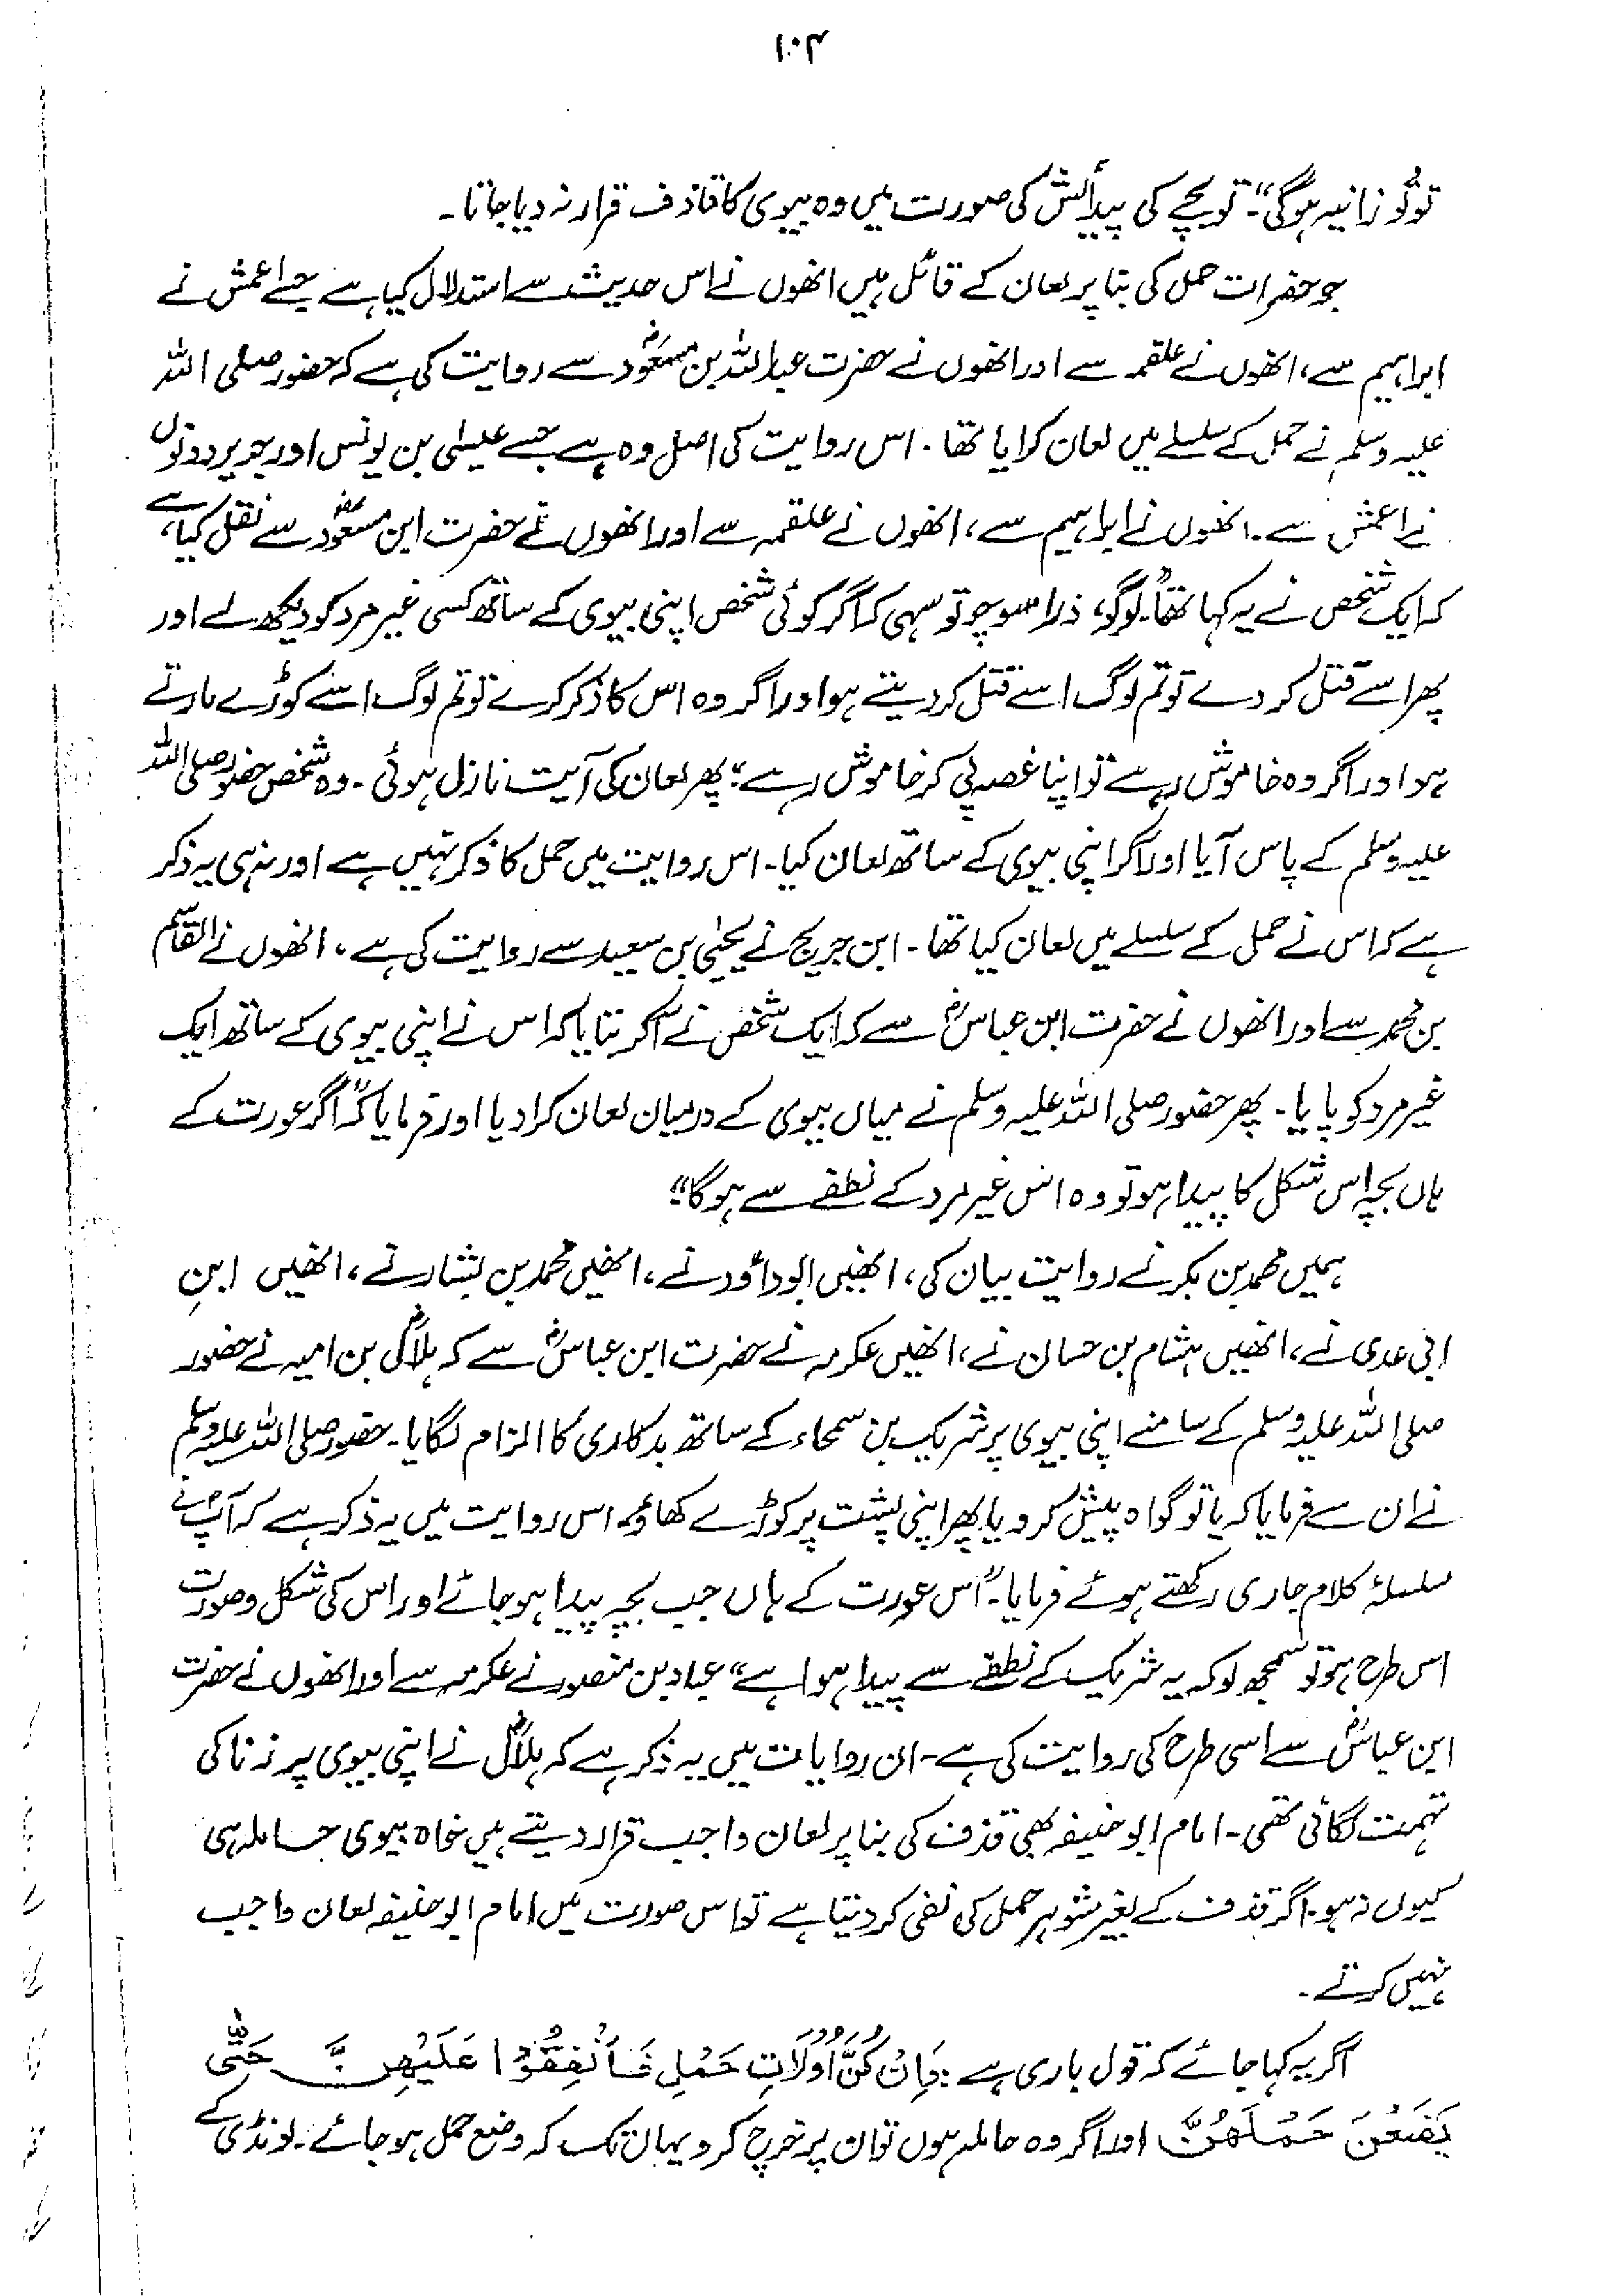 ۱۰۴
تو تُو زانیہ ہوگی"۔ تو بچے کی پیدائش کی صورت میں وہ بیوی کا قاذف قرار نہ دیا جاتا۔
جو حضرات حمل کی بنا پر لعان کے قائل ہیں انھوں نے اس حدیث سے استدلال کیا ہے جسے اعمش نے
ابراہیم سے، انھوں نے علقمہ سے اور انھوں نے حضرت عبداللہ بن مسعودؓ سے روایت کی ہے کہ حضور صلی اللہ
علیہ وسلم نے حمل کے سلسلے میں لعان کرایا تھا۔ اس روایت کی اصل وہ ہے جسے عیسٰی بن یونس اور جریر دونوں
نے اعمش سے۔ انھوں نے ابراہیم سے، انھوں نے علقمہ سے اور انھوں نے حضرت ابن مسعودؓ سے نقل کیا ہے،
کہ ایک شخص نے یہ کہا تھا "لوگو، ذرا سوچو تو سہی کہ اگر کوئی شخص اپنی بیوی کے ساتھ کسی غیر مرد کو دیکھ لے اور
پھر اسے قتل کر دے تو تم لوگ اسے قتل کر دیتے ہو اور اگر وہ اس کا ذکر کرے تو تم لوگ اسے کوڑے مارتے
ہو اور اگر وہ خاموش رہے تو اپنا غصہ پی کر خاموش رہے" پھر لعان کی آیت نازل ہوئی۔ وہ شخص حضور صلی اللہ
علیہ وسلم کے پاس آیا اور آکر اپنی بیوی کے ساتھ لعان کیا۔ اس روایت میں حمل کا ذکر نہیں ہے اور نہ ہی یہ ذکر
ہے کہ اس نے حمل کے سلسلے میں لعان کیا تھا۔ ابن جریج نے یحیٰی بن سعید سے روایت کی ہے، انھوں نے القاسم
بن محمد سے اور انھوں نے حضرت ابن عباسؓ سے کہ ایک شخص نے آکر بتایا کہ اس نے اپنی بیوی کے ساتھ ایک
غیر مرد کو پایا۔ پھر حضور صلی اللہ علیہ وسلم نے میاں بیوی کے درمیان لعان کرا دیا اور فرمایا کہ "اگر عورت کے
ہاں بچہ اس شکل کا پیدا ہو تو وہ اس غیر مرد کے نطفے سے ہوگا"
ہمیں محمد بن بکر نے روایت بیان کی، انھیں ابوداؤد نے، انھیں محمد بن بشار نے، انھیں ابنِ
ابی عدی نے، انھیں ہشام بن حسان نے، انھیں عکرمہ نے حضرت ابن عباسؓ سے کہ ہلالؓ بن امیہ نے حضور
صلی اللہ علیہ وسلم کے سامنے اپنی بیوی پر شریک بن سحماء کے ساتھ بدکاری کا الزام لگایا۔ حضور صلی اللہ علیہ وسلم
نے ان سے فرمایا کہ یا تو گواہ پیش کرو یا پھر اپنی پشت پر کوڑے کھاؤ" اس روایت میں یہ ذکر ہے کہ آپؐ نے
سلسلۂ کلام جاری رکھتے ہوئے فرمایا۔ "اس عورت کے ہاں جب بچہ پیدا ہو جائے اور اس کی شکل و صورت
اس طرح ہو تو سمجھ لو کہ یہ شریک کے نطفے سے پیدا ہوا ہے" عباد بن منصور نے عکرمہ سے اور انھوں نے حضرت
ابن عباسؓ سے اسی طرح کی روایت کی ہے۔ ان روایات میں یہ ذکر ہے کہ ہلالؓ نے اپنی بیوی پر زنا کی
تہمت لگائی تھی۔ امام ابوحنیفہ بھی قذف کی بنا پر لعان واجب قرار دیتے ہیں خواہ بیوی حاملہ ہی
کیوں نہ ہو۔ اگر قذف کے بغیر شوہر حمل کی نفی کر دیتا ہے تو اس صورت میں امام ابوحنیفہ لعان واجب
نہیں کرتے۔
اگر یہ کہا جائے کہ قول باری ہے: وَاِنْ كُنَّ اُولَاتِ حَمْلٍ فَاَنْفِقُوْا عَلَيْهِنَّ حَتّٰى
يَضَعْنَ حَمْلَهُنَّ اور اگر وہ حاملہ ہوں تو ان پر خرچ کرو یہاں تک کہ وضع حمل ہو جائے۔ لونڈی کے